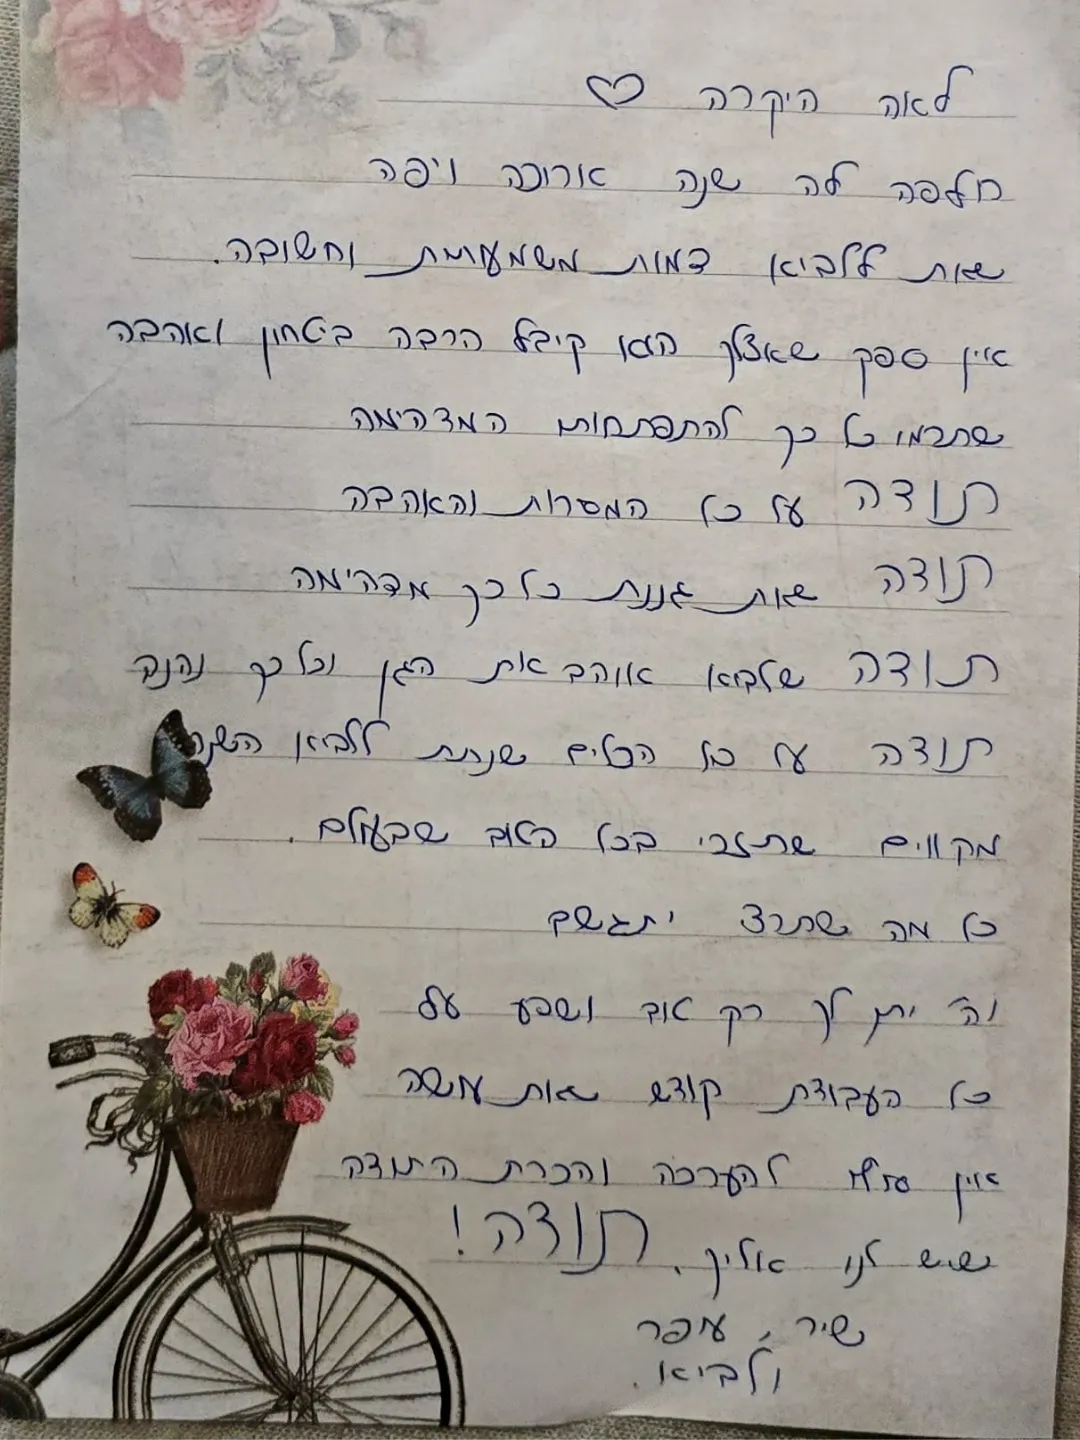 לאה היקרה ♡
חלפה לה שנה ארוכה ויפה
שאת ללביא דמות משמעותית וחשובה.
אין ספק שאצלך הוא קיבל הרבה ביטחון ואהבה
שתרמו כל כך להתפתחות המדהימה
תודה על כל המסרות והאהבה
תודה שאת גננת כל כך מדהימה
תודה שלביא אוהב את הגן וכל כך נהנה
תודה על כל הכלים שנתת ללביא השנה
מקווים שתזכי בכל הטוב שבעולם.
כל מה שתרצי יתגשם
וה' יתן לך רק טוב ושפע על
כל העבודת קודש שאת עושה
אין להערכה והכרת התודה
שיש לנו אליך. תודה!
שיר, עופר
ולביא.